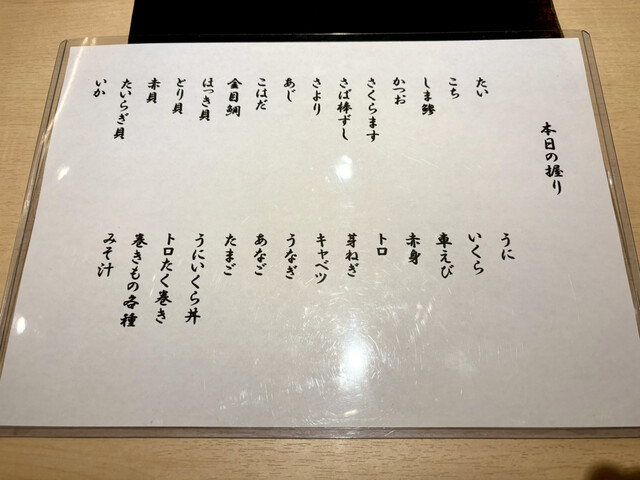 本日の握り
たい
こち
しま鯵
かつお
さくらます
さば棒ずし
さより
あじ
こはだ
金目鯛
ほっき貝
とり貝
赤貝
たいらぎ貝
いか
うに
いくら
車えび
赤身
トロ
芽ねぎ
キャベツ
うなぎ
あなご
たまご
うにいくら丼
トロたく巻き
巻きもの各種
みそ汁